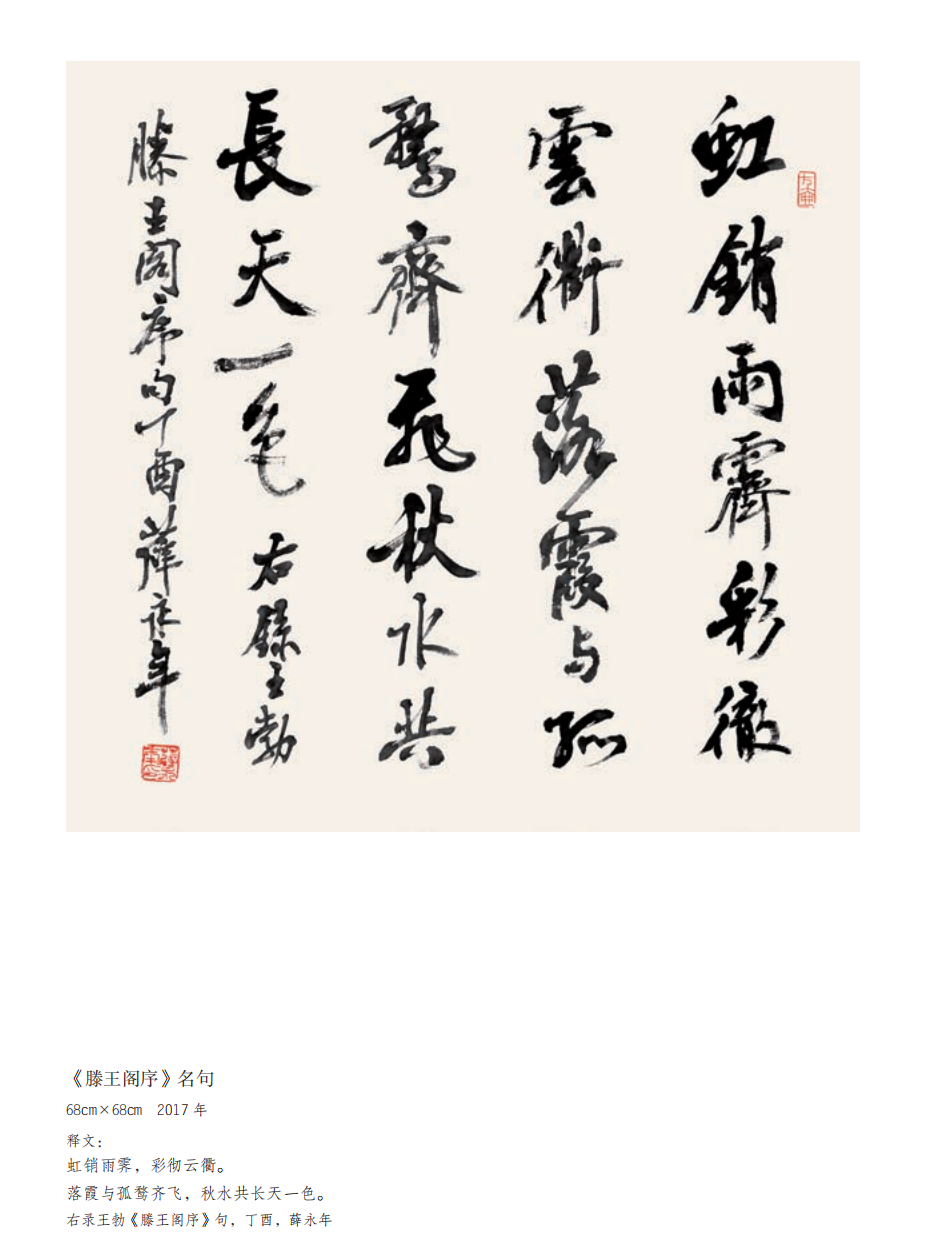 虹銷雨霽彩徹
雲衢落霞与孤
鶩齊飛秋水共
長天一色 右錄王勃
滕王阁序句丁酉薛永年
《滕王阁序》名句
68cm×68cm 2017 年
释文:
虹销雨霁，彩彻云衢。
落霞与孤鹜齐飞，秋水共长天一色。
右录王勃《滕王阁序》句，丁酉，薛永年